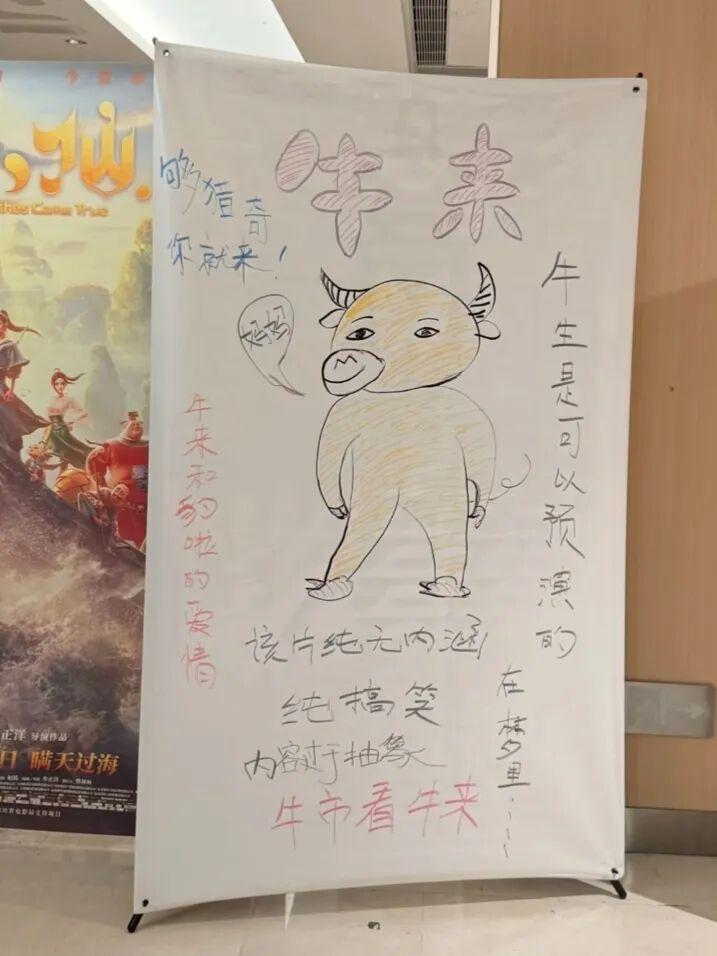 牛来
够猎奇
你就来！
妈妈
牛生是可以预演的
在梦里……
牛来和豹啦的爱情
该片纯无内涵
纯搞笑
内容过于抽象
牛市看牛来
shes Come True
正洋 导演作品
日 瞒天过海